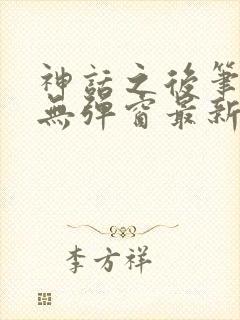 神話之後筆
無彈窗最新
李方祥